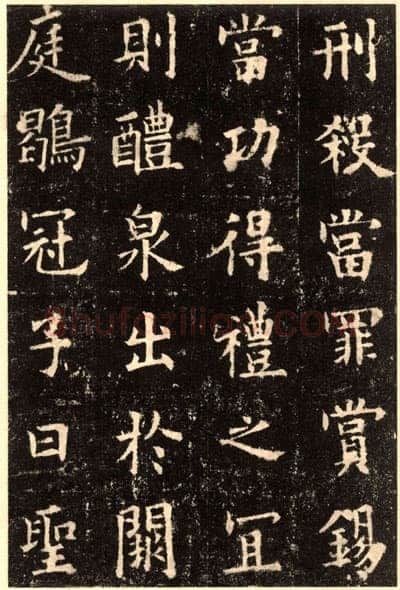 刑殺當罪賞錫
當功得禮之冝
則醴泉出於闕
庭鶡冠子曰聖
shufaziliao.com